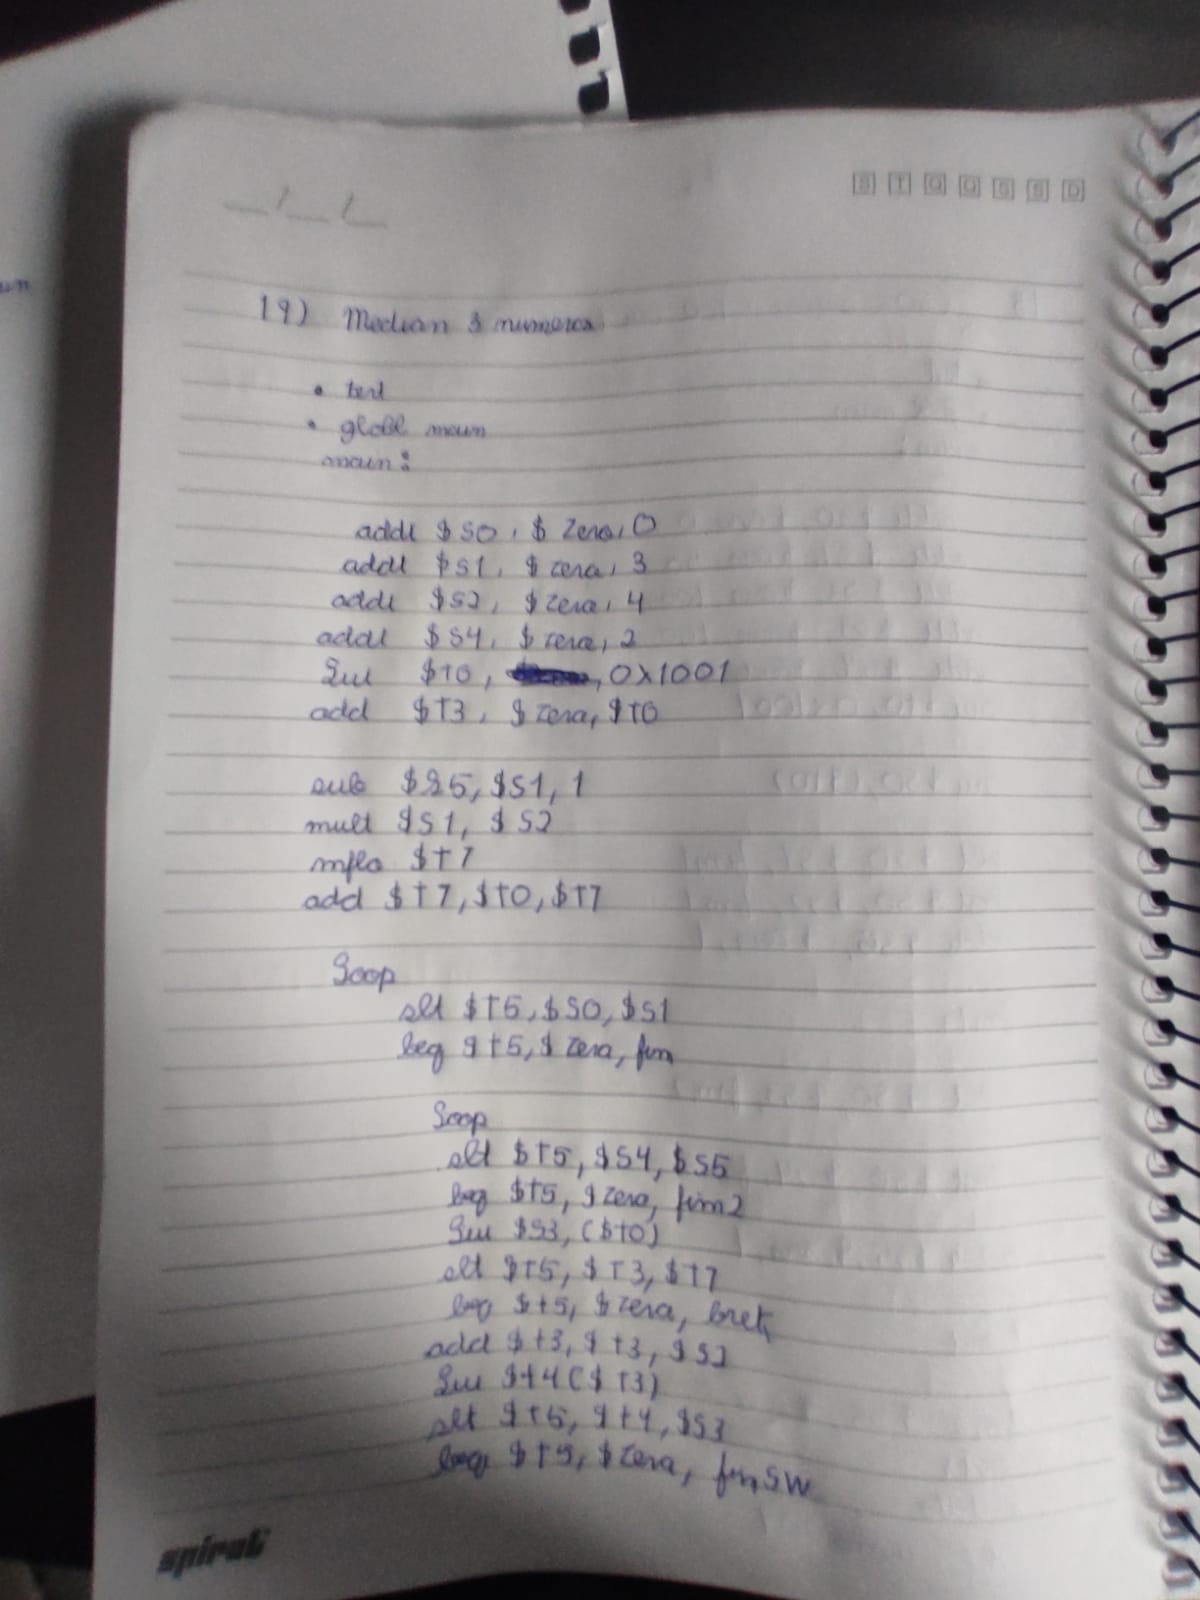 S T Q Q S S D
__/__/__
19) Median 3 numeros
. text
. globl main
main:
addi $s0, $zero, 0
addi $s1, $zero, 3
addi $s2, $zero, 4
addi $s4, $zero, 2
lui $t0, , 0x1001
add $t3, $zero, $t0
sub $s5, $s1, 1
mult $s1, $s2
mflo $t7
add $t7, $t0, $t7
loop
slt $t5, $s0, $s1
beq $t5, $zero, fim
loop
slt $t5, $s4, $s5
beq $t5, $zero, fim2
lw $s3, ($t0)
slt $t5, $t3, $t7
beq $t5, $zero,
add $t3, $t3, $s2
lw $t4 ($t3)
slt $t5, $t4, $s3
beq $t5, $zero, fimsw
spiral